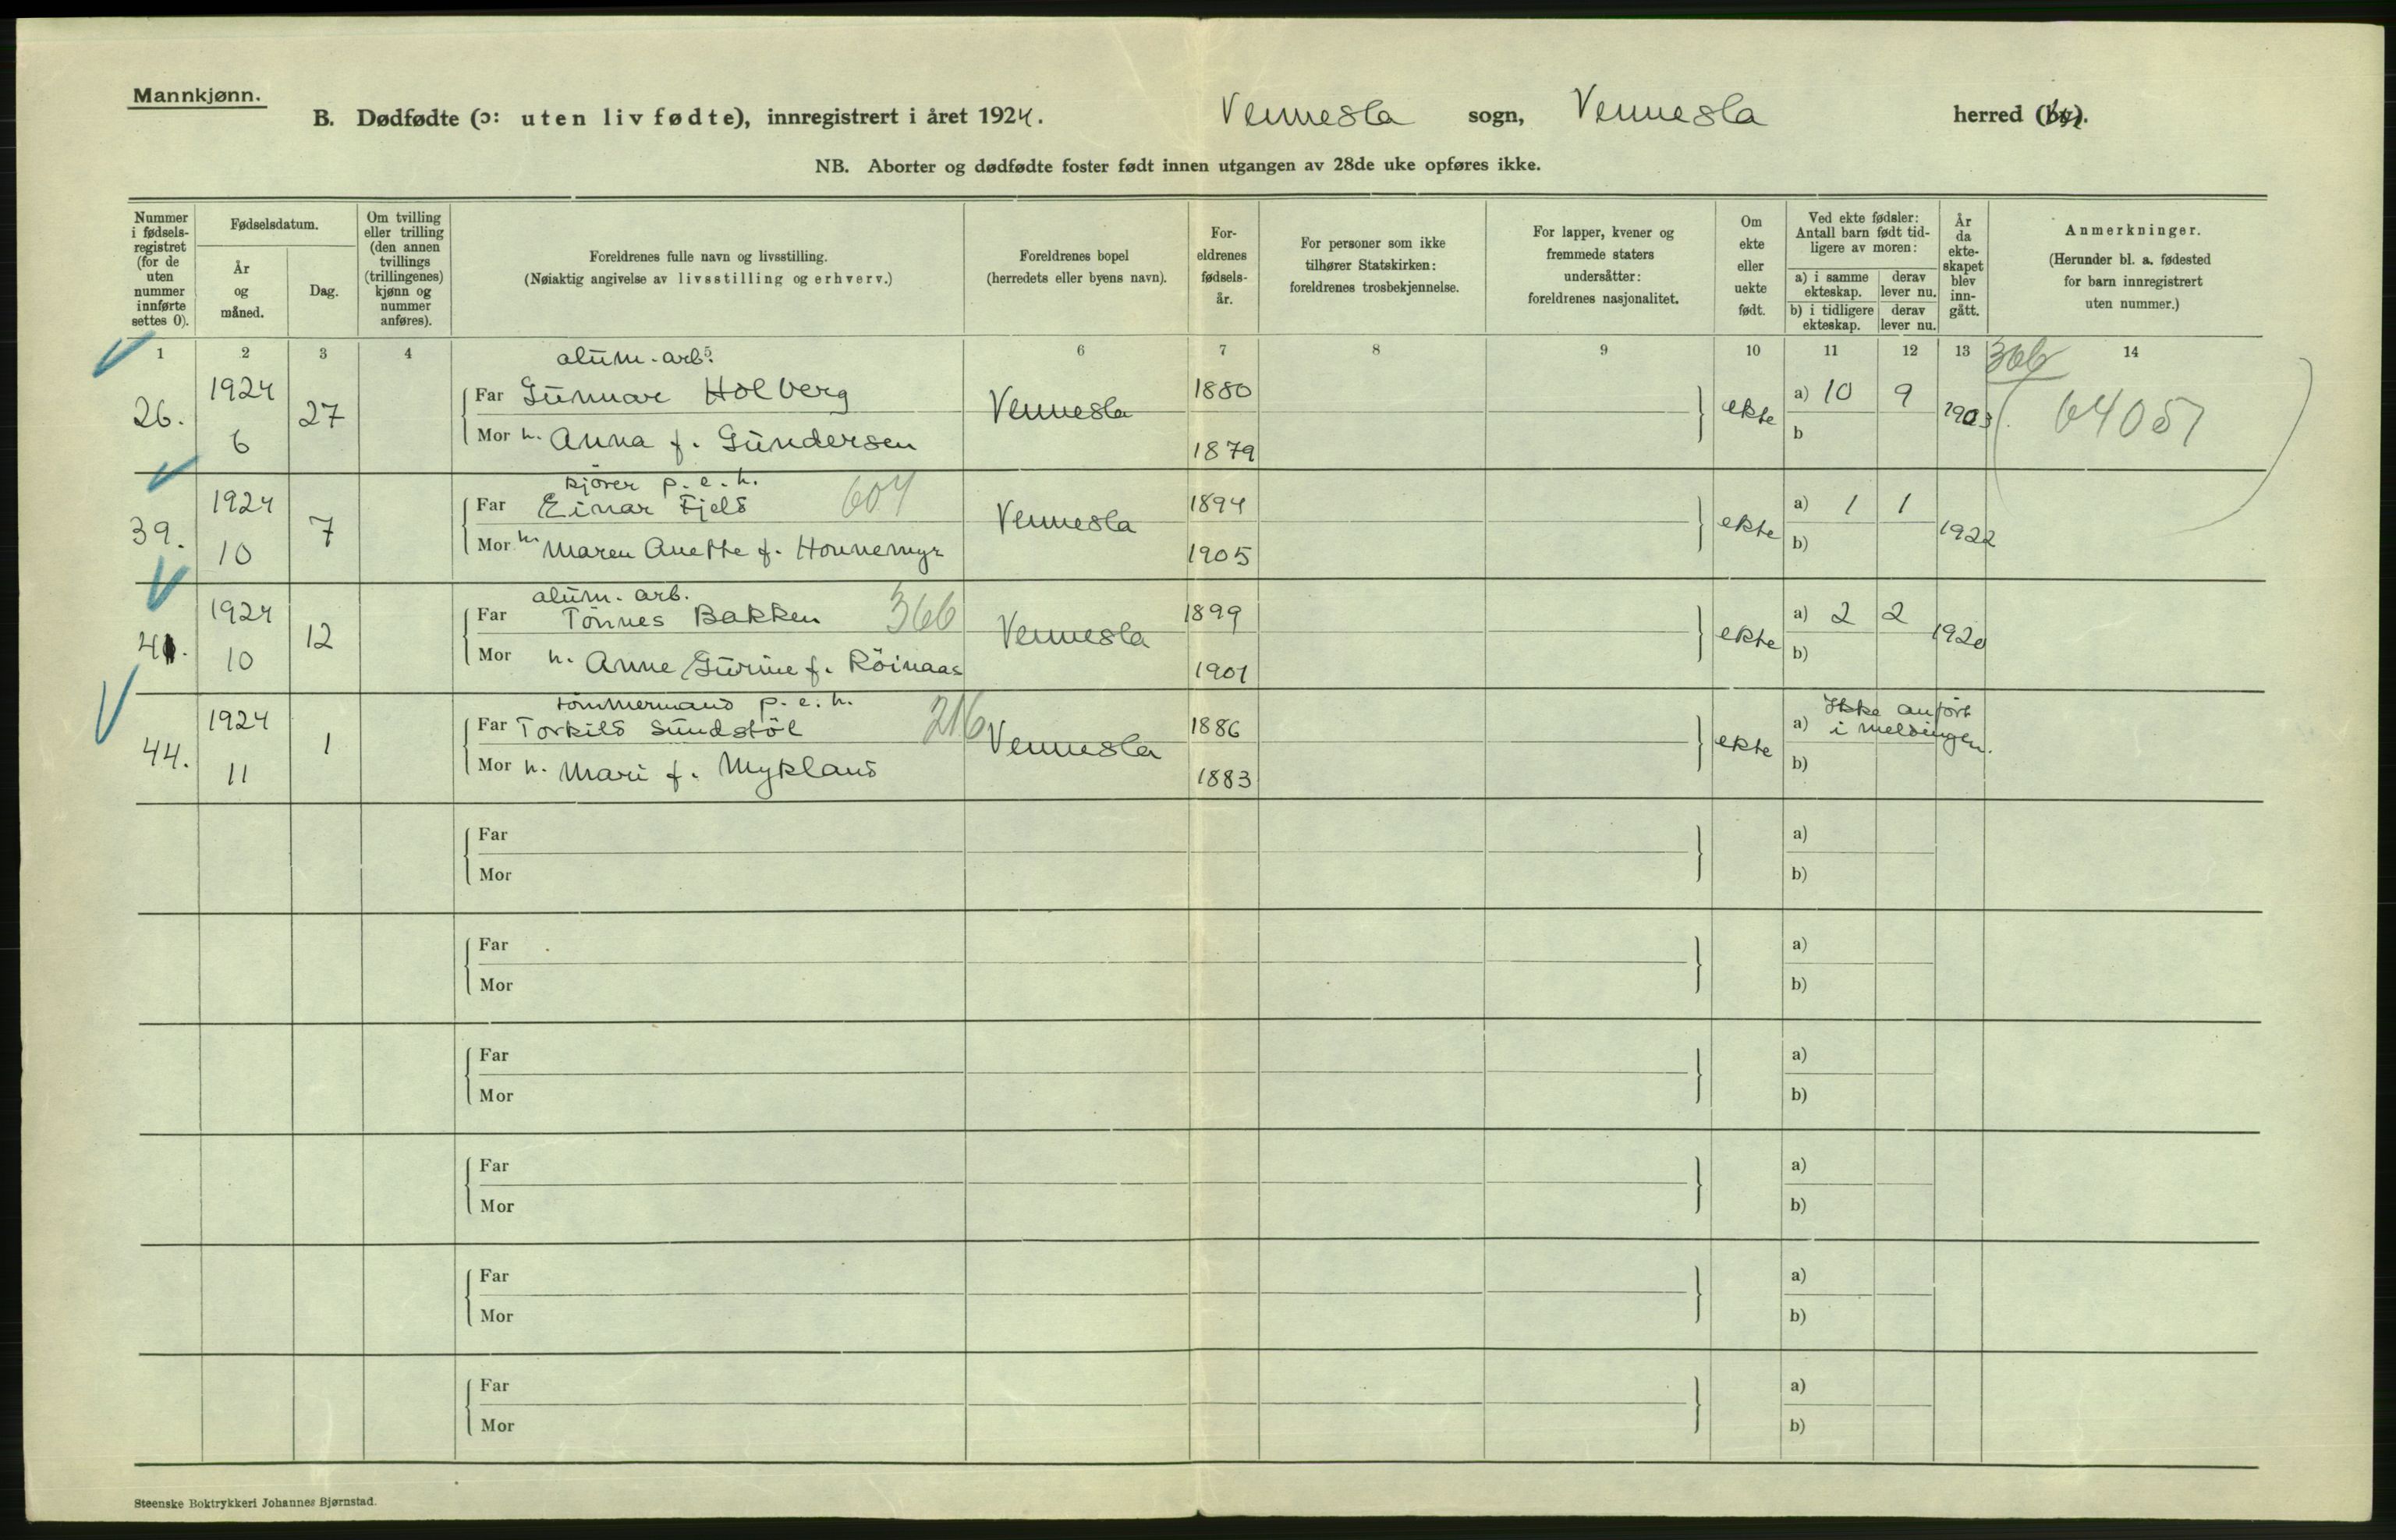 Mannkjønn.
B. Dødfødte (ɔ: uten liv fødte), innregistrert i året 1924. Vennesla sogn, Vennesla herred (by).
NB. Aborter og dødfødte foster født innen utgangen av 28de uke opføres ikke.
Nummer i fødsels-registret (for de uten nummer innførte settes 0).
Fødselsdatum.
År og måned.
Dag.
Om tvilling eller trilling (den annen tvillings (trillingenes) kjønn og nummer anføres).
Foreldrenes fulle navn og livsstilling.
(Nøiaktig angivelse av livsstilling og erhverv.)
Foreldrenes bopel
(herredets eller byens navn).
For-eldrenes fødsels-år.
For personer som ikke tilhører Statskirken: foreldrenes trosbekjennelse.
For lapper, kvener og fremmede staters undersåtter: foreldrenes nasjonalitet.
Om ekte eller uekte født.
Ved ekte fødsler: Antall barn født tid-ligere av moren:
a) i samme ekteskap. derav lever nu.
b) i tidligere ekteskap. derav lever nu.
År da ekte-skapet blev inn-gått.
Anmerkninger.
(Herunder bl. a. fødested for barn innregistrert uten nummer.)
1 2 3 4 6 7 8 9 10 11 12 13 14
366
alum. arb.
26. 1924 6 27 Far Gunnar Holberg Vennesla 1880 ekte a) 10 9 1903 64051
Mor h. Anna f. Gundersen 1879 b
kjører p. e. h.
39. 1924 10 7 Far Einar Fjeld 604 Vennesla 1894 ekte a) 1 1 1922
Mor h. Maren Anette f. Honnemyr 1905 b)
alum. arb.
41. 1924 10 12 Far Tönnes Bakken 366 Vennesla 1899 ekte a) 2 2 1920
Mor h. Anne Gurine f. Röinaas 1901 b)
tömmermand p. e. h.
44. 1924 11 1 Far Torkild Sundstöl 216 Vennesla 1886 ekte a) Ikke anfört i meldingen.
Mor h. Mari f. Mykland 1883 b)
Far a)
Mor b)
Far a)
Mor b)
Far a)
Mor b)
Far a)
Mor b)
Far a)
Mor b)
Far a)
Mor b)
Steenske Boktrykkeri Johannes Bjørnstad.